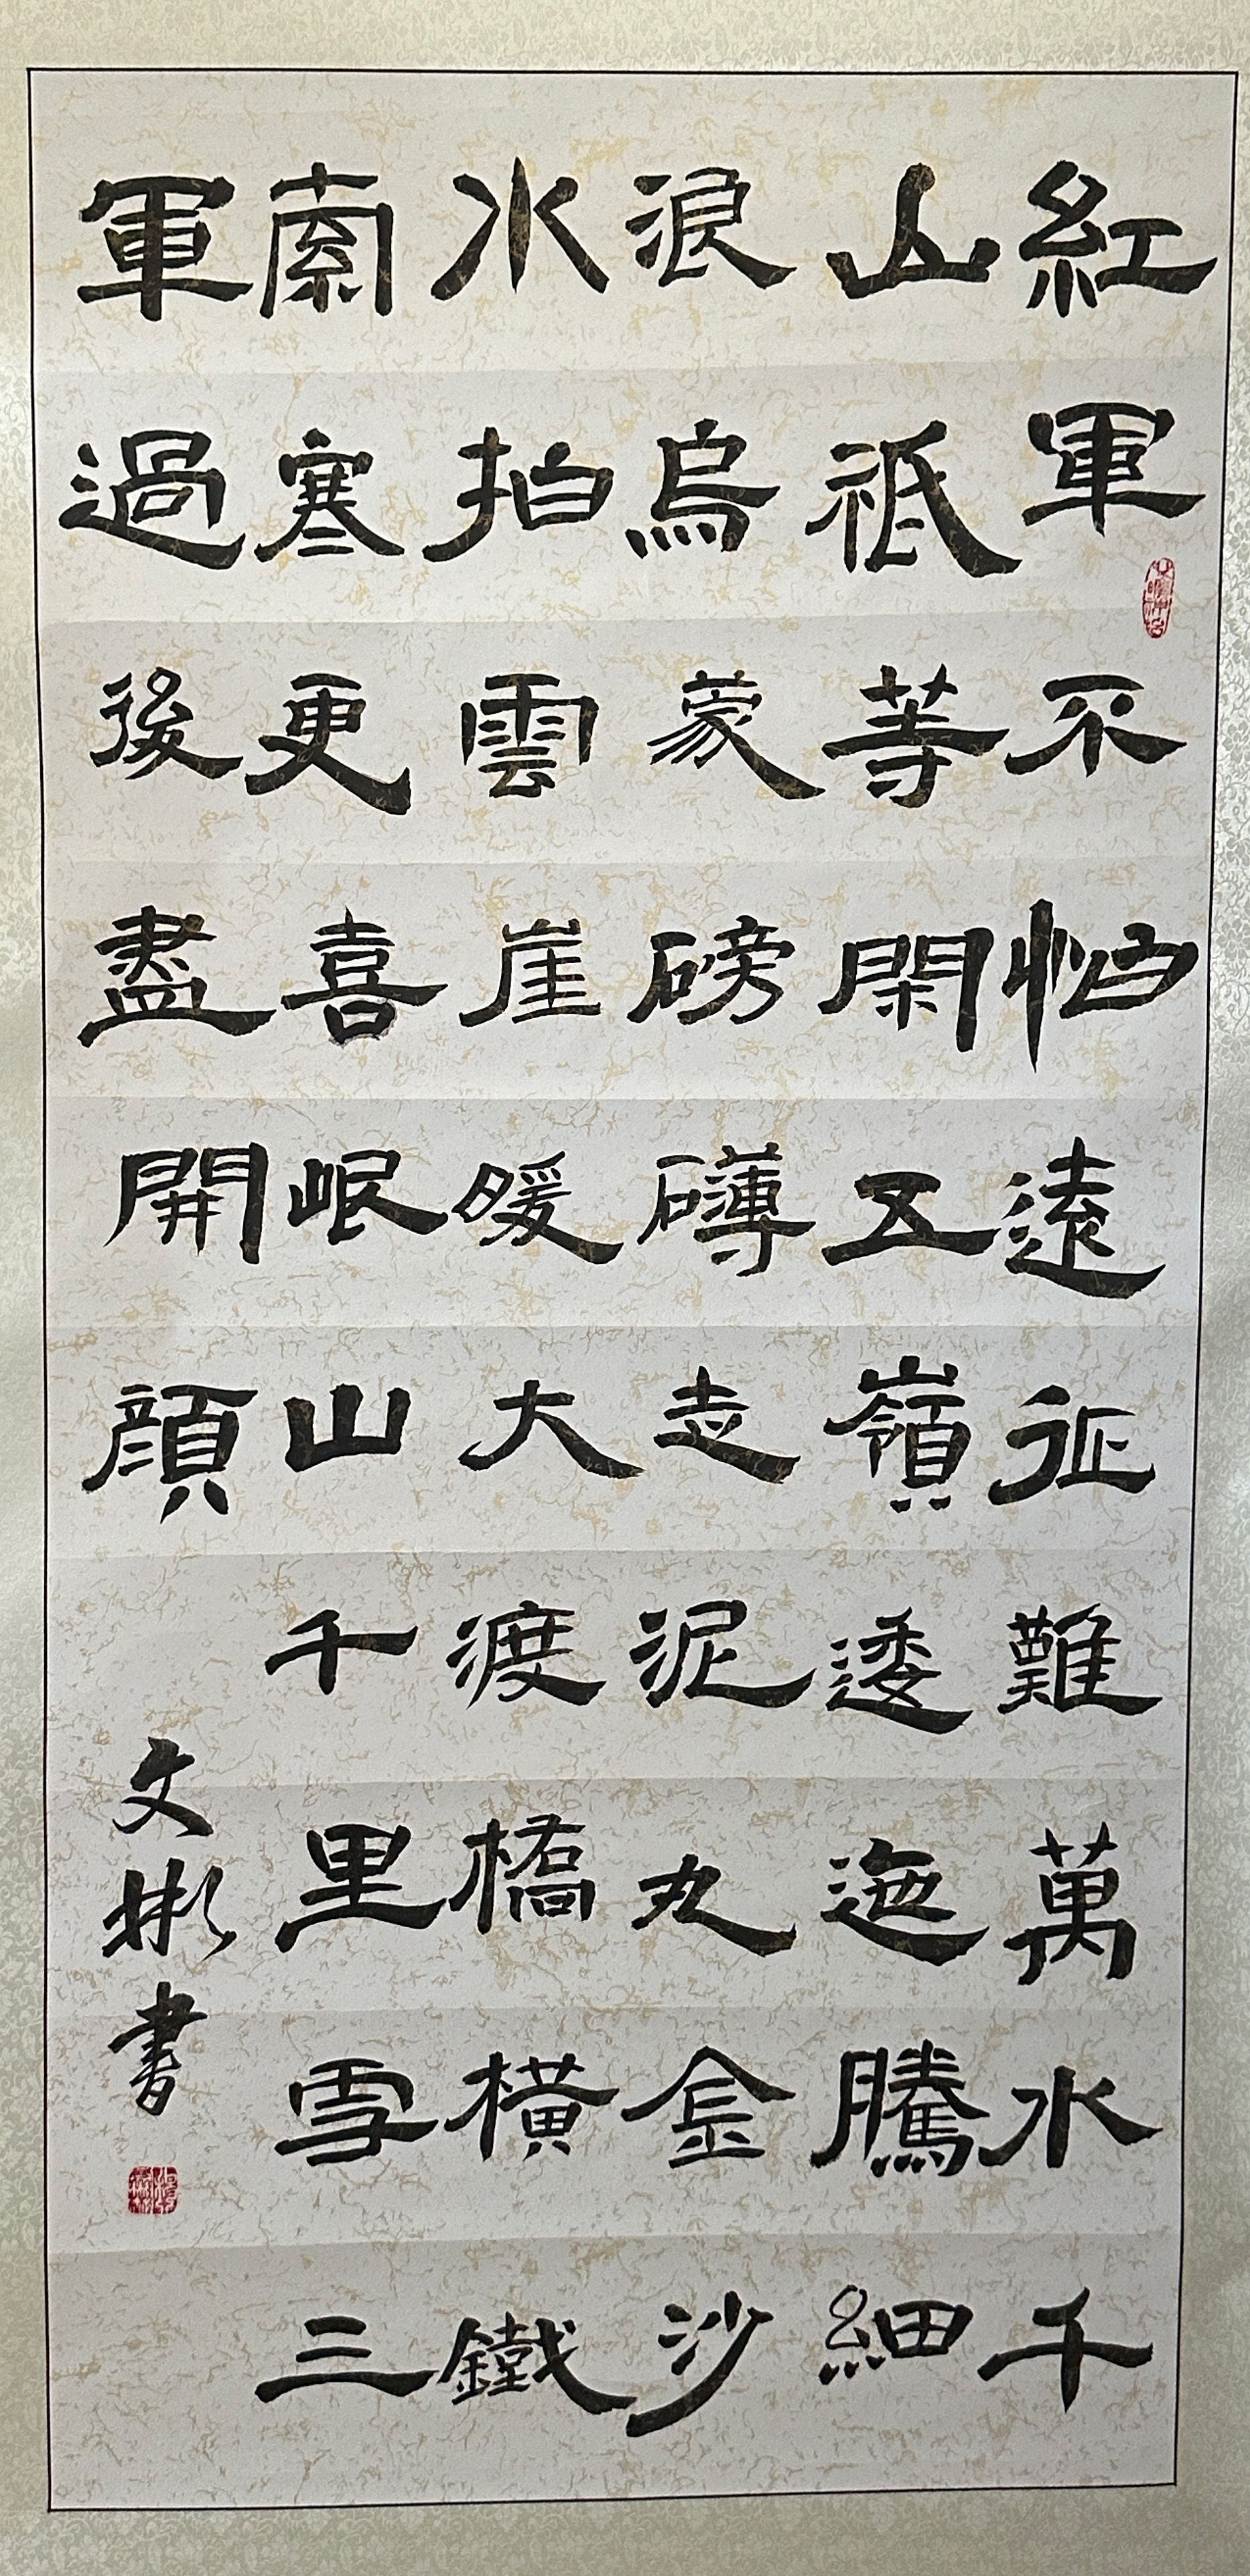 紅軍不怕遠征難萬水千
山祗等閑五嶺逶迤騰細
浪烏蒙磅礴走泥丸金沙
水拍雲崖暖大渡橋橫鐵
索寒更喜岷山千里雪三
軍過後盡開顏
文彬書